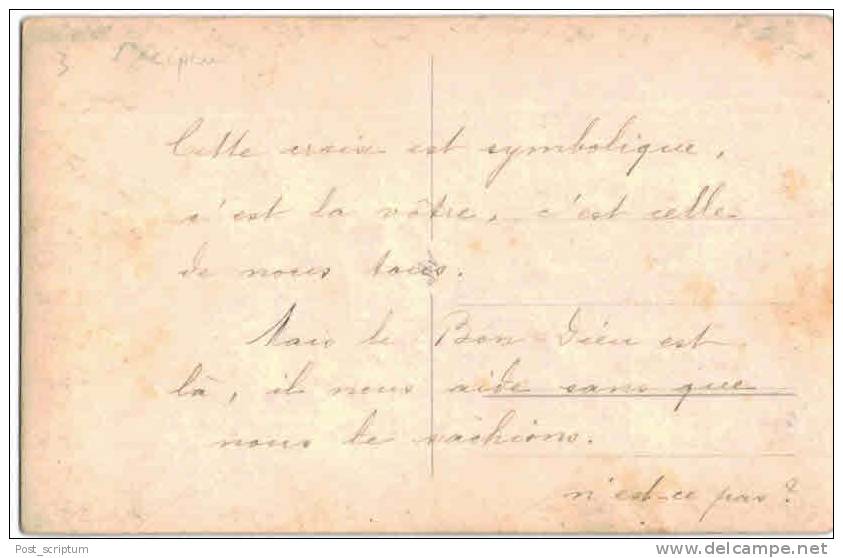 3
Cette croix est symbolique,
c'est la vôtre, c'est celle
de nous tous.
Mais le Bon Dieu est
là, il nous aide sans que
nous le sachions.
n'est-ce pas ?
Post_scriptum
delcampe.net